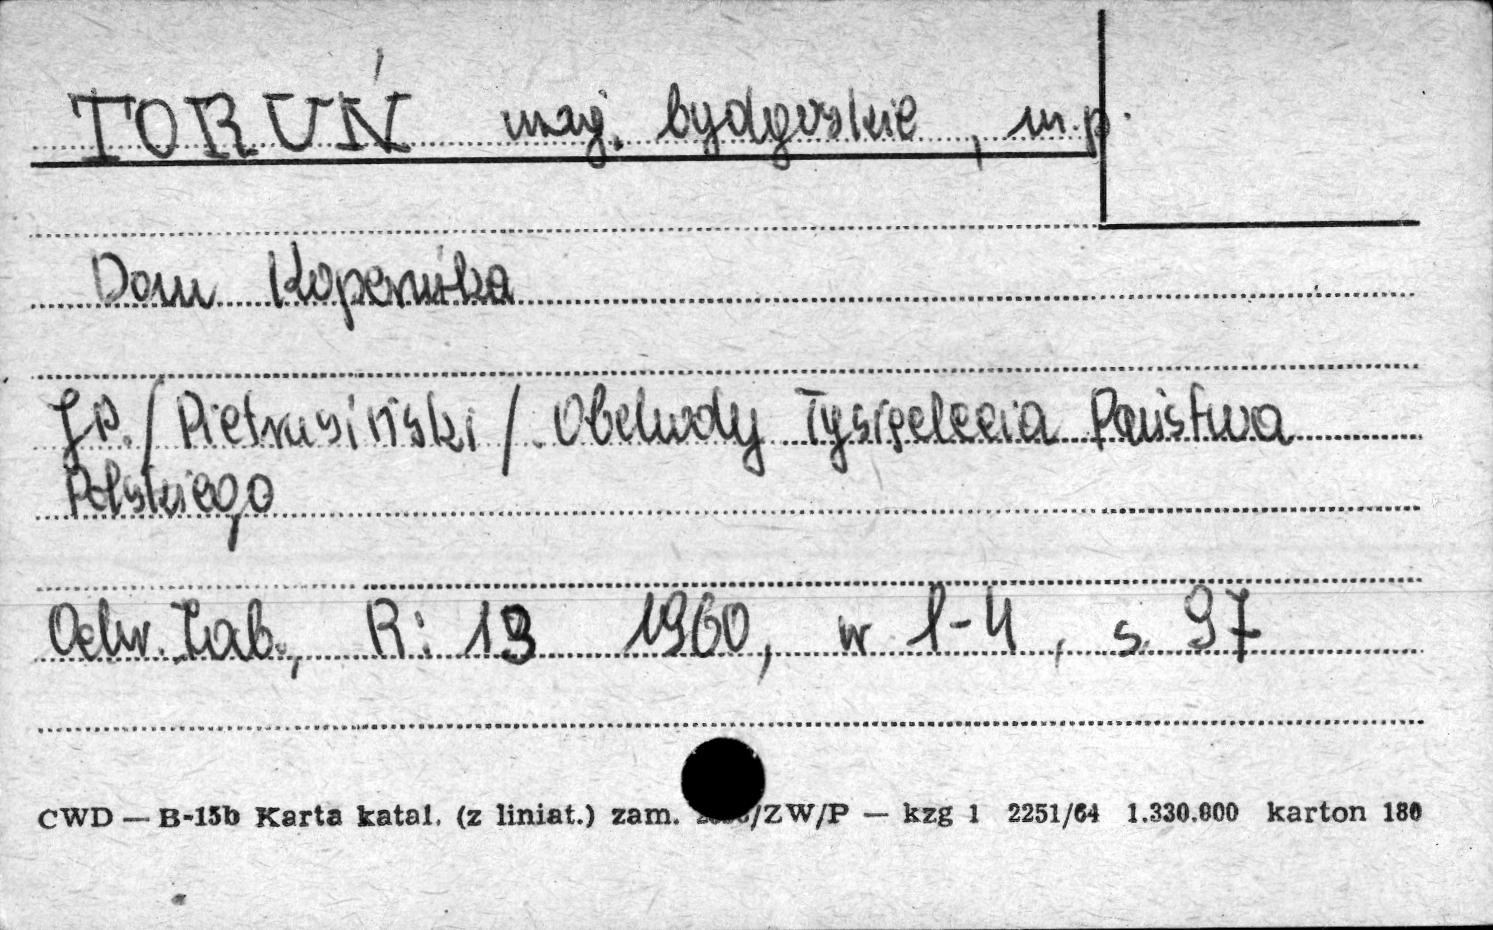 TORUŃ woj. bydgoskie, m.p.
Dom Kopernika
J.P./Pietrusiński/. Obchody Tysiąclecia Państwa
Polskiego
Ochr. Zab., R: 13 1960, nr 1-4, s. 97
CWD — B-15b Karta katal. (z liniat.) zam. /ZW/P — kzg 1 2251/64 1.330.000 karton 180